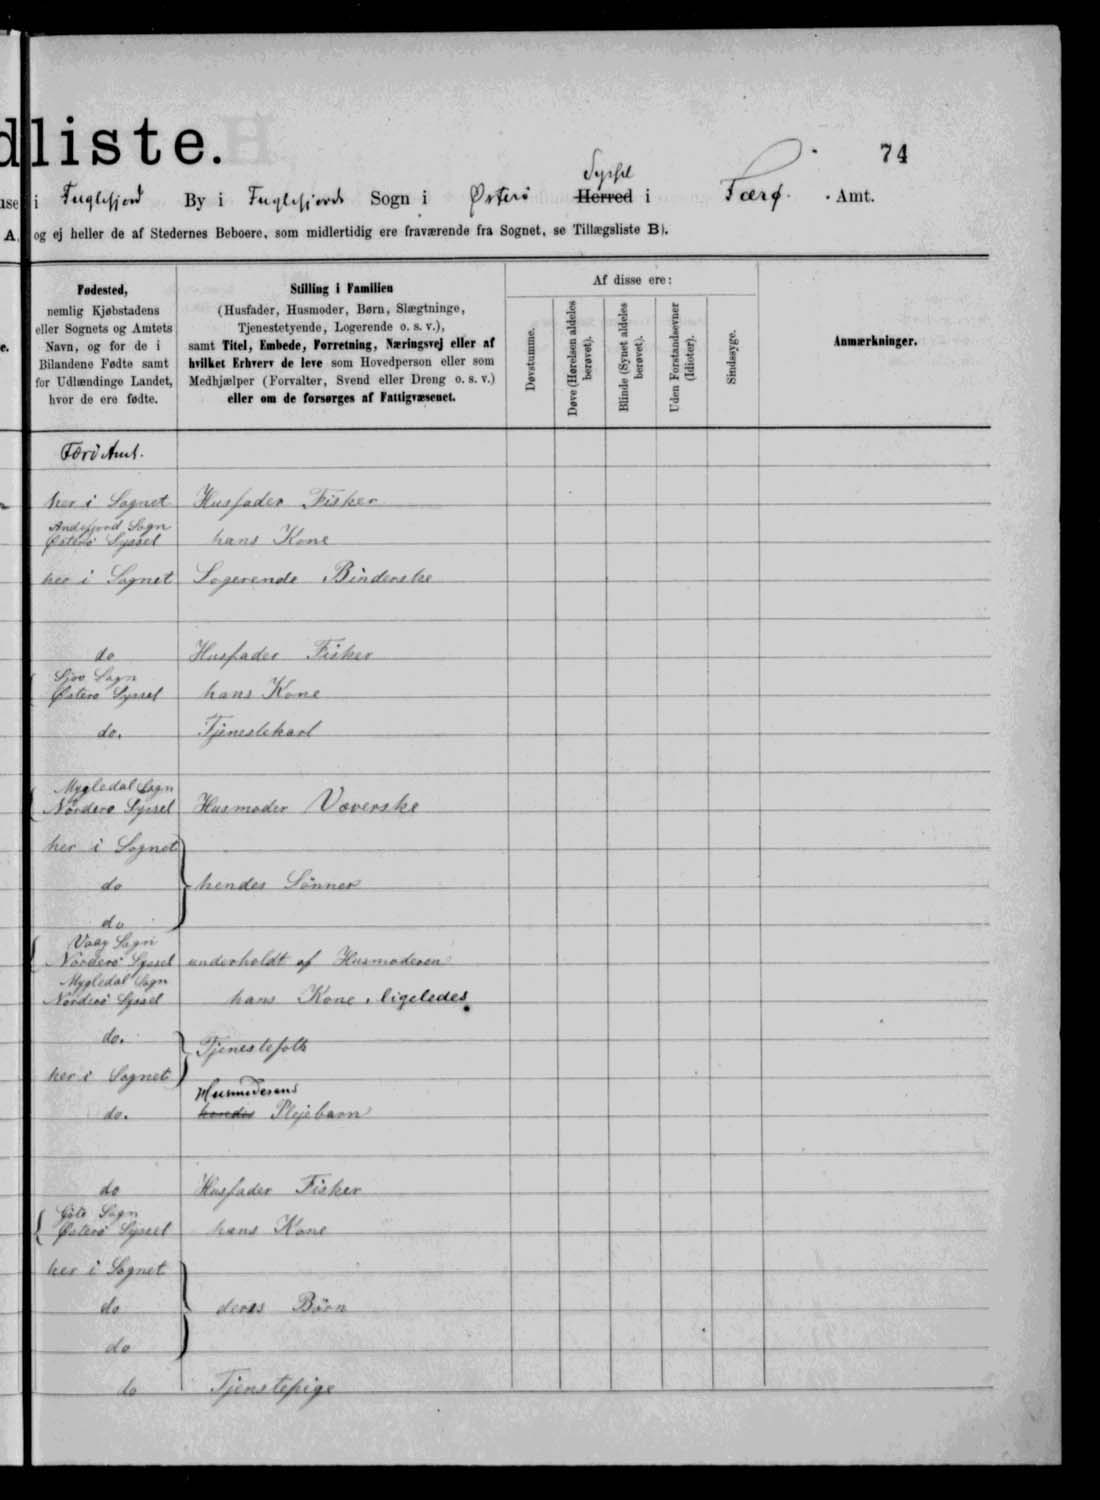 dliste.
74
use i Fuglefjord By i Fuglefjords Sogn i Østerø Herred Syssel i Færø. Amt.
A, og ej heller de af Stedernes Beboere, som midlertidig ere fraværende fra Sognet, se Tillægsliste B).
Fødested,
nemlig Kjøbstadens
eller Sognets og Amtets
Navn, og for de i
Bilandene Fødte samt
for Udlændinge Landet,
hvor de ere fødte.
Stilling i Familien
(Husfader, Husmoder, Børn, Slægtninge,
Tjenestetyende, Logerende o. s. v.),
samt Titel, Embede, Forretning, Næringsvej eller af
hvilket Erhverv de leve som Hovedperson eller som
Medhjælper (Forvalter, Svend eller Dreng o. s. v.)
eller om de forsørges af Fattigvæsenet.
Af disse ere:
Døvstumme.
Døve (Hørelsen aldeles
berøvet).
Blinde (Synet aldeles
berøvet).
Uden Forstandsevner
(Idioter).
Sindssyge.
Anmærkninger.
Færö Amt.
her i Sognet Husfader Fisker
Andefjord Sogn
Østerö Syssel hans Kone
her i Sognet Logerende Binderske
do Husfader Fisker
Sjov Sogn
Østerö Syssel hans Kone
do. Tjenestekarl
Mygledal Sogn
Nörderö Syssel Husmoder Væverske
her i Sognet
do hendes Sönner
do
Vaag Sogn
Nörderö Syssel underholdt af Husmoderen
Mygledal Sogn
Nörderö Syssel hans Kone, ligeledes
do. Tjenestefolk
her i Sognet
Husmoderens
do. hendes Plejebarn
do Husfader Fisker
Göte Sogn
Østerö Syssel hans Kone
her i Sognet
do deres Börn
do
do Tjenstepige